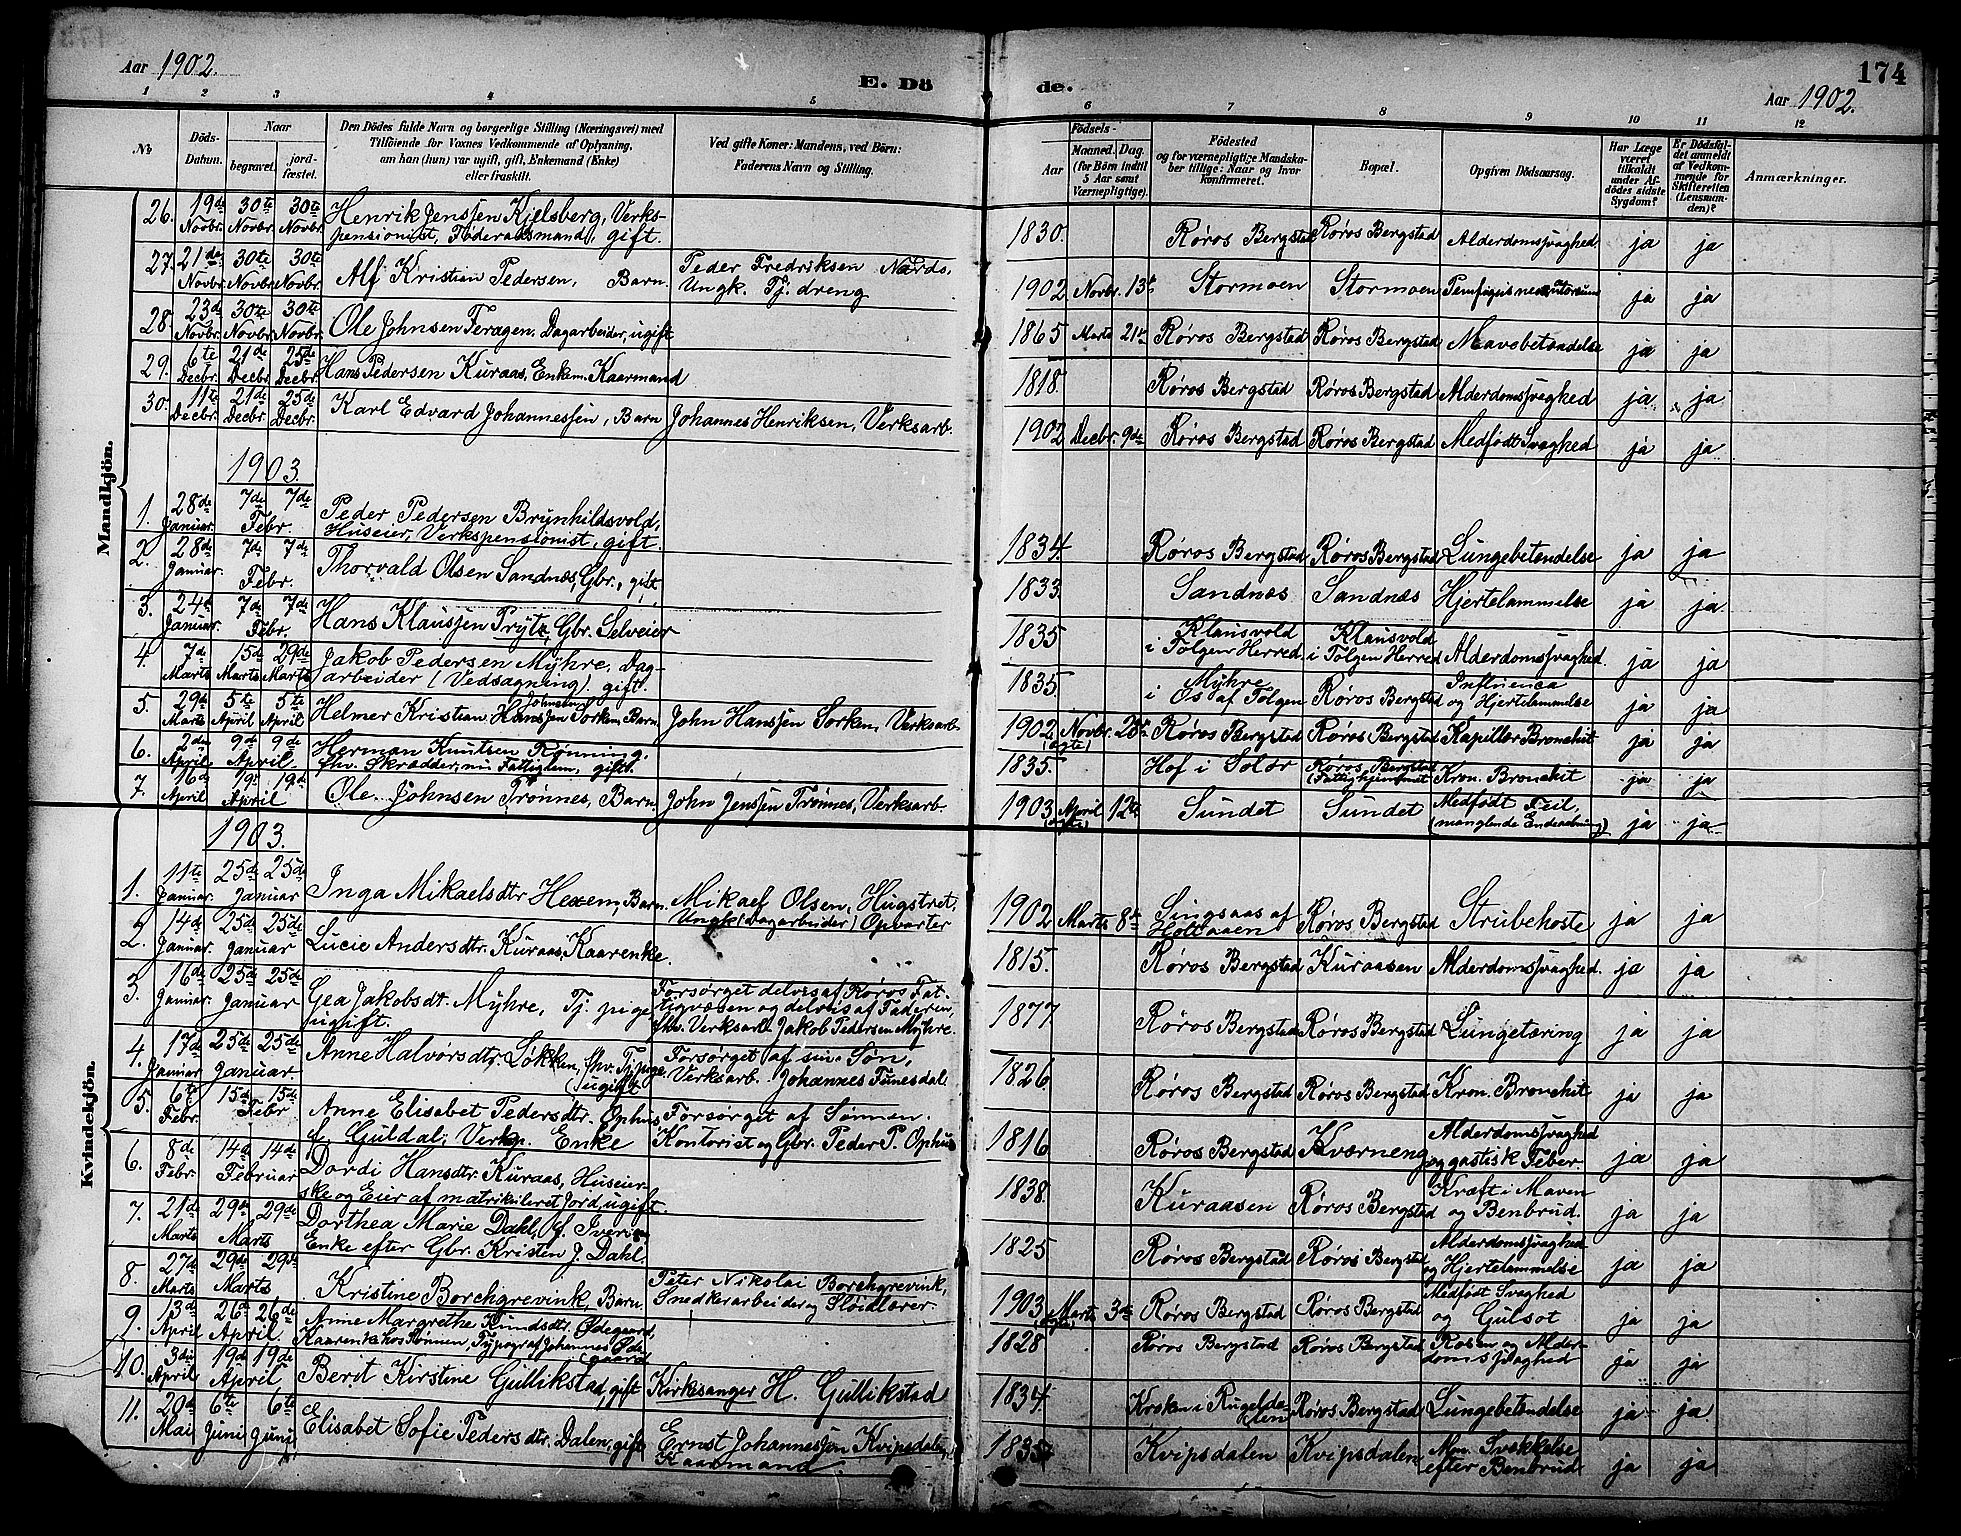 Aar 1902.
E. Dö de.
174
Aar 1902.
1 2 3 4 5 6 7 8 9 10 11 12
No.
Döds-Datum.
Naar
begravet. jordfæstet.
Den Dödes fulde Navn og borgerlige Stilling (Næringsvei) med
Tilföiende for Voxnes Vedkommende af Oplysning,
om han (hun) var ugift, gift, Enkemand (Enke)
eller fraskilt.
Ved gifte Koner: Mandens, ved Börn:
Faderens Navn og Stilling.
Födsels-
Aar Maaned. Dag.
(for Börn indtil
5 Aar samt
Værnepligtige).
Födested
og for værnepligtige Mandskaber tillige: Naar og hvor
konfirmeret.
Bopæl.
Opgiven Dödsaarsag.
Har Læge
været
tilkaldt
under Afdödes sidste
Sygdom?
Er Dödsfaldet anmeldt
af Vedkommende for
Skifteretten
(Lensmanden)?
Anmærkninger.
Mandkjön.
26. 19de Novbr. 30te Novbr. 30te Novbr. Henrik Jenssen Kjelsberg, Verkspensionist, Föderaadsmand, gift. 1830. Røros Bergstad Røros Bergstad Alderdomssvaghed ja ja
27. 21de Novbr. 30te Novbr. 30te Novbr. Alf Kristian Pedersen, Barn. Peder Fredriksen Ungk. Tj. dreng 1902 Novbr. 13de Stormoen Stormoen ja ja
28. 23d Novbr. 30te Novbr. 30te Novbr. Ole Johnsen Feragen, Dagarbeider, ugift 1865 Marts 21de Røros Bergstad Røros Bergstad Mavebetændelse ja ja
29. 6te Decbr. 21de Decbr. 25de Decbr. Hans Pedersen Kuraas, Enkem. Kaarmand 1818. Røros Bergstad Røros Bergstad Alderdomssvaghed ja ja
30. 11te Decbr. 21de Decbr. 25de Decbr. Karl Edvard Johannessen, Barn Johannes Henriksen, Verksarb. 1902 Decbr. 9de Røros Bergstad Røros Bergstad Medfödt Svaghed ja ja
1903.
1. 28de Januar. 7de 7de Febr. Peder Pedersen Brynhildsvold, Huseier, Verkspensionist, gift. 1834. Røros Bergstad Røros Bergstad Lungebetændelse ja ja
2. 28de Januar. 7de 7de Febr. Thorvald Olsen Sandnæs, Gbr., gift 1833. Sandnæs Sandnæs Hjertelammelse ja ja
3. 24d Januar. 7de 7de Febr. Hans Klaussen Prytz, Gbr. Selveier 1835 Klausvold i Tolgen Herred. Klausvold i Tolgen Herred Alderdomssvaghed ja ja
4. 7de Marts 15de Marts 29de Marts Jakob Pedersen Myhre, Dagarbeider (Vedsagning). gift. 1835. Myhre i Os af Tolgen Røros Bergstad Influenca og Hjertelammelse ja ja
5. 29de Marts 5te April 5te April Helmer Kristian Hanssen Johnsen Sorken, Barn John Hanssen Sorken, Verksarb. 1902 (ægte) Novbr. 28de Røros Bergstad Røros Bergstad Kapillær Bronchit ja ja
6. 2den April 9de 9de April. Herman Knutsen Rønning, fhv. Skrædder, nu Fattiglem, gift. 1835. Hof i Solør Røros Bergstad (Fattighjemmet Kron. Bronchit ja ja
7. 16de April 19de 19de April Ole Johnsen Trønnes, Barn. John Jenssen Trønnes, Verksarb. 1903 (ægte) April 12te Sundet Sundet Medfödt Feil, (manglende Endeaabning) ja ja
Kvindekjön.
1903.
1. 11te Januar. 25de 25de Januar Inga Mikaelsdtr Hexem, Barn. Mikael Olsen, Ungk. (dagarbeider) Opvarter 1902 Marts 8de Singsaas af Holtaalen Røros Bergstad Strubehoste ja ja
2. 14de Januar. 25de 25de Januar Lucie Andersdtr. Kuraas, Kaarenke. 1815. Røros Bergstad Kuraasen Alderdomssvaghed. ja ja
3. 16de Januar. 25de 25de Januar Gea Jakobsdt. Myhre, Tj. pige ugift. Forsørget delvis af Røros Fattigvæsen og delvis af Faderen, fhv. Verksarb Jakob Pedersen Myhre. 1877 Røros Bergstad Røros Bergstad Lungetæring ja ja
4. 17de Januar 25de 25de Januar Anne Halvorsdtr. Løkken, fhv. Tj.pige. (ugift Forsørget af sin Søn, Verksarb. Johannes Funesdal 1826 Røros Bergstad Røros Bergstad Kron. Bronchit ja ja
5. 6te Febr. 15de 15de Febr Anne Elisabet Pedersdtr. Ophus f. Guldal, Verkp. Enke Forsørget af Sönnen. Kontorist og Gbr. Peder P. Ophus 1816 Røros Bergstad Kværneng Alderdomssvaghed og gastisk Feber. ja ja
6. 8de Febr. 14de 14de Februar Dordi Hansdtr. Kuraas, Huseierske og Eier af matrikuleret Jord, ugift. 1838. Kuraasen Røros Bergstad Kræft i Maven og Benbrud. ja ja
7. 21de Marts 29de 29de Marts Dorthea Marie Dahl, Enke efter Gbr. Kristen J. Dahl. 1825 Røros Bergstad Røros Bergstad Alderdomssvaghed og Hjertelammelse ja ja
8. 27de Marts 29de 29de Marts Kristine Borchgrevink, Barn Peter Nikolai Borchgrevink, Snedkerarbeider og Slöidlærer. 1903 Marts 3die Røros Bergstad Røros Bergstad Medfödt Svaghed og Gulsot ja ja
9. 13de April 26de 26de April Anne Margrethe Knudsdtr. Ødegaard, Kaarenke hos Sønnen, Typograf Johannes Ødegaard 1828 Røros Bergstad Røros Bergstad Rosen og Alderdomssvaghed ja ja
10. 3die April 19de 19de April Berit Kirstine Gullikstad, gift Kirkesanger H. Gullikstad 1834 Kroken i Rugeldalen Røros Bergstad Lungebetændelse ja ja
11. 20de Mai 6te Juni 6te Juni Elisabet Sofie Pedersdtr. Dalen, gift Ernst Johannessen Kvipsdalen, Kaarmand 1835 Kvipsdalen Kvipsdalen Alm. Svækkelse efter Benbrud ja ja